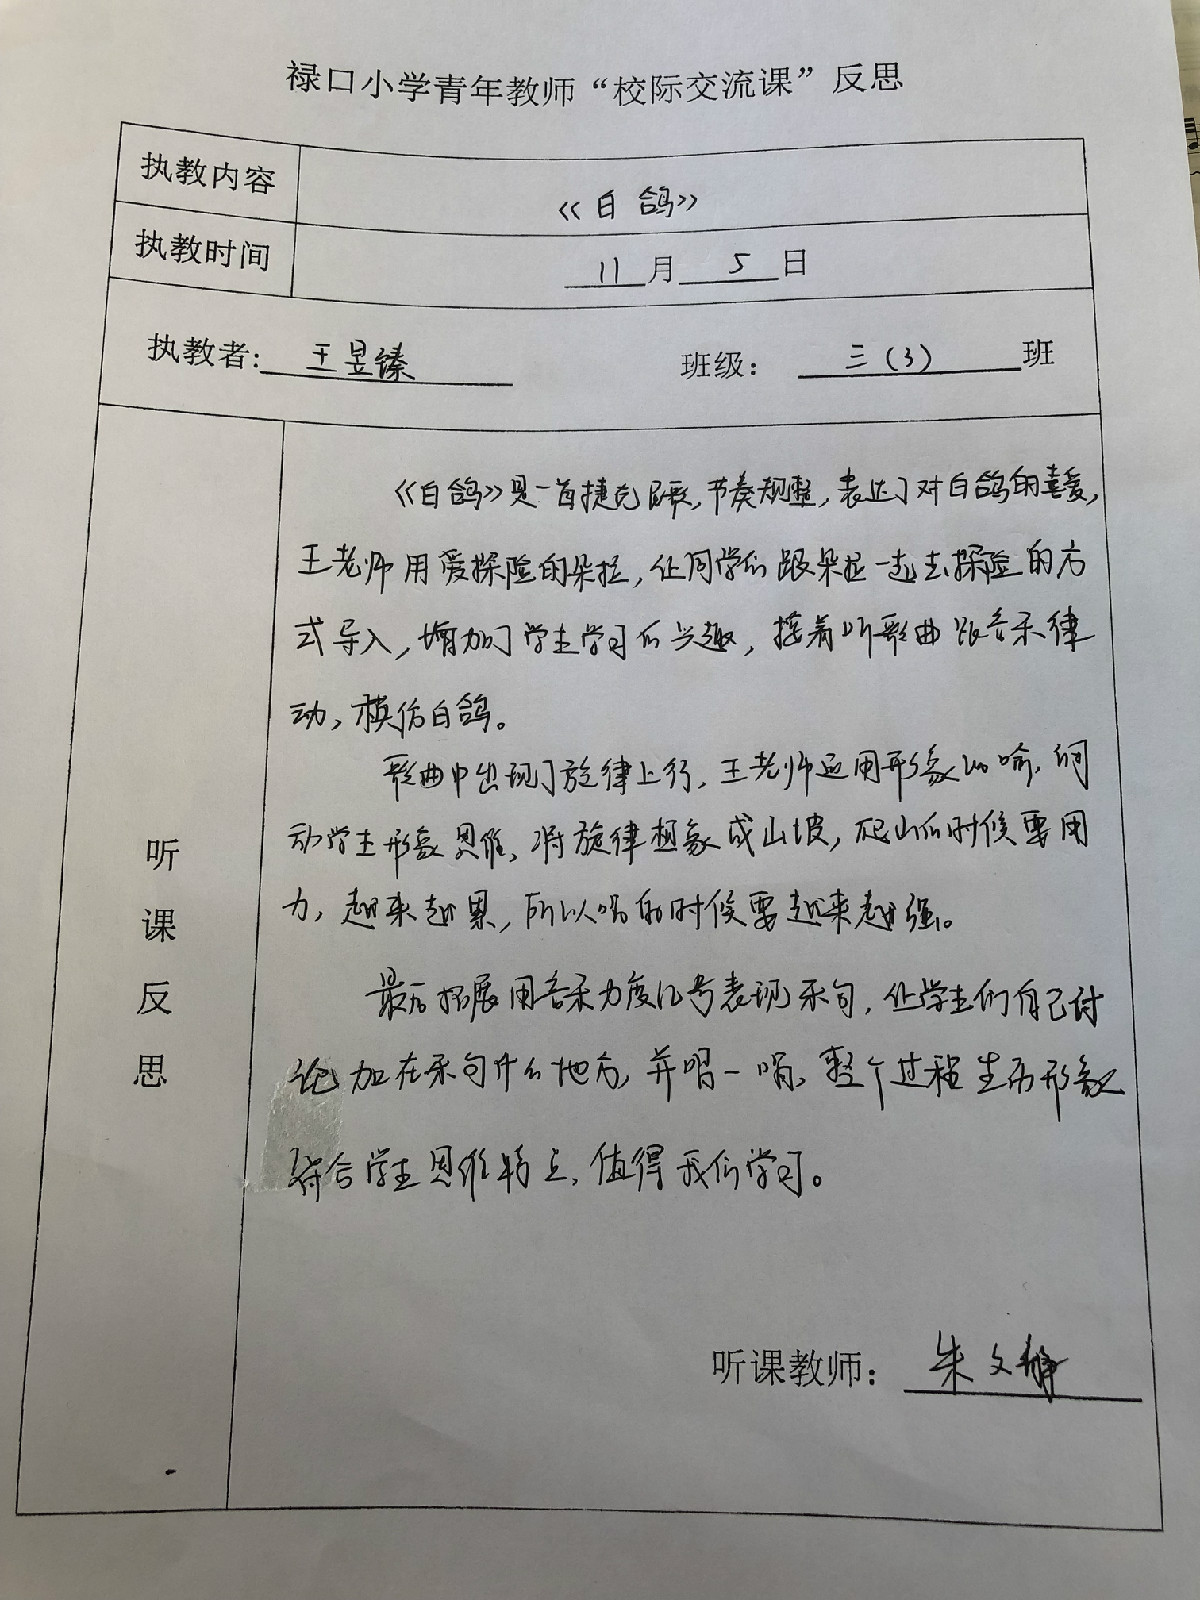 禄口小学青年教师“校际交流课”反思
执教内容
《白鸽》
执教时间
11月5日
执教者：王昱臻 班级：三（3）班
听课反思
《白鸽》是一首捷克民歌，节奏规整，表达了对白鸽的喜爱，
王老师用爱探险的朵拉，让同学们跟朵拉一起去探险的方
式导入，增加了学生学习的兴趣，接着听歌曲跟音乐律
动，模仿白鸽。
歌曲中出现了旋律上行，王老师运用形象比喻，调
动学生形象思维，将旋律想象成山坡，爬山的时候要用
力，越来越累，所以唱的时候要越来越强。
最后拓展用音乐力度记号表现乐句，让学生们自己讨
论加在乐句什么地方，并唱一唱，整个过程生动形象
符合学生思维特点，值得我们学习。
听课教师：朱文静